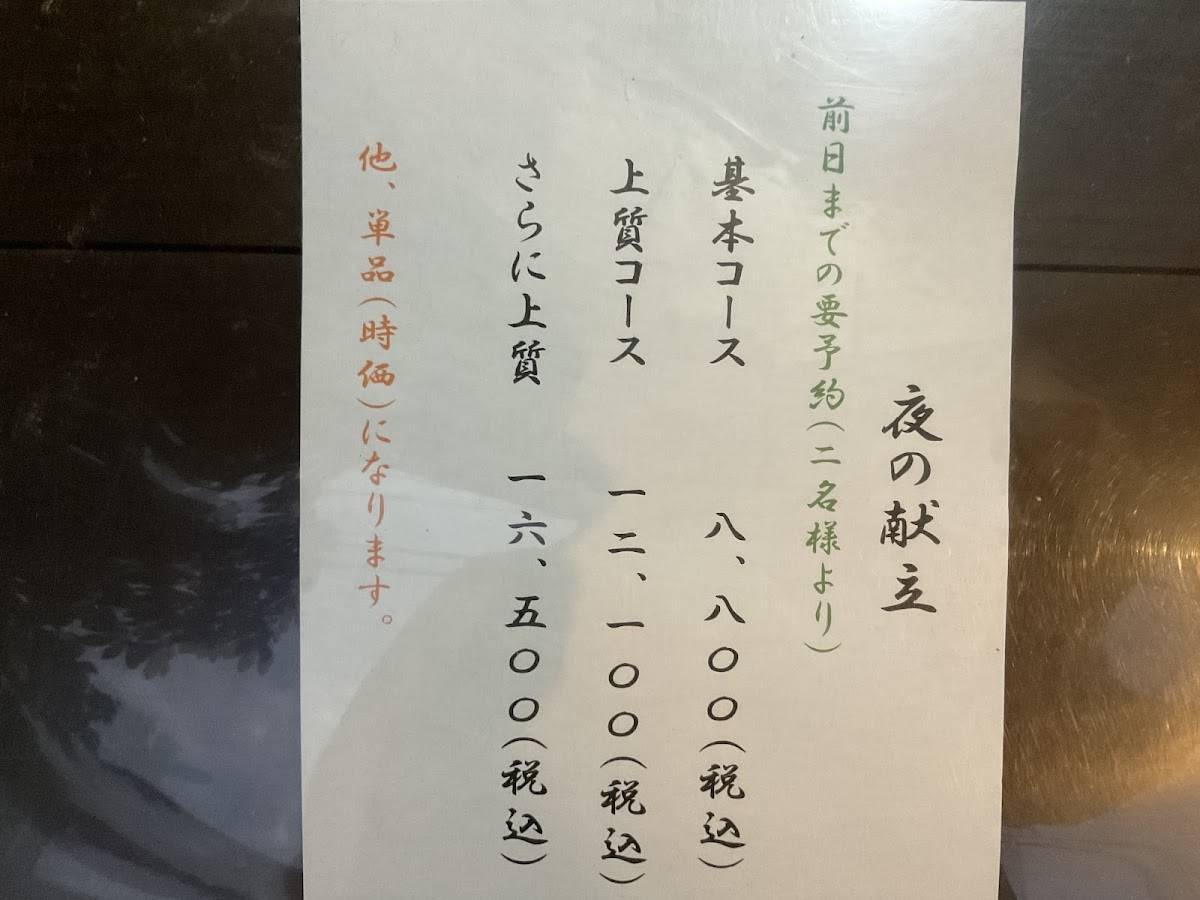 夜の献立
前日までの要予約(二名様より)
基本コース 八、八〇〇(税込)
上質コース 一二、一〇〇(税込)
さらに上質 一六、五〇〇(税込)
他、単品(時価)になります。